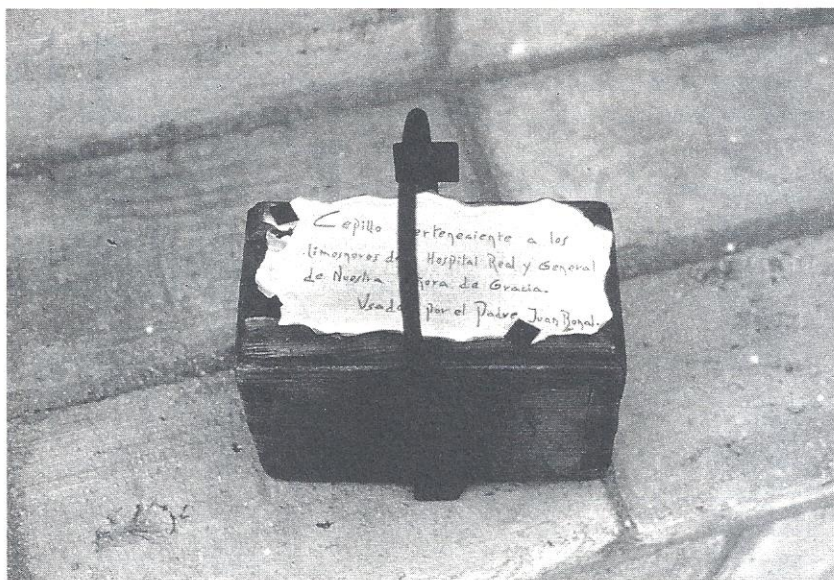 Cepillo perteneciente a los
limosneros del Hospital Real y General
de Nuestra Señora de Gracia.
Usado por el Padre Juan Bonal.